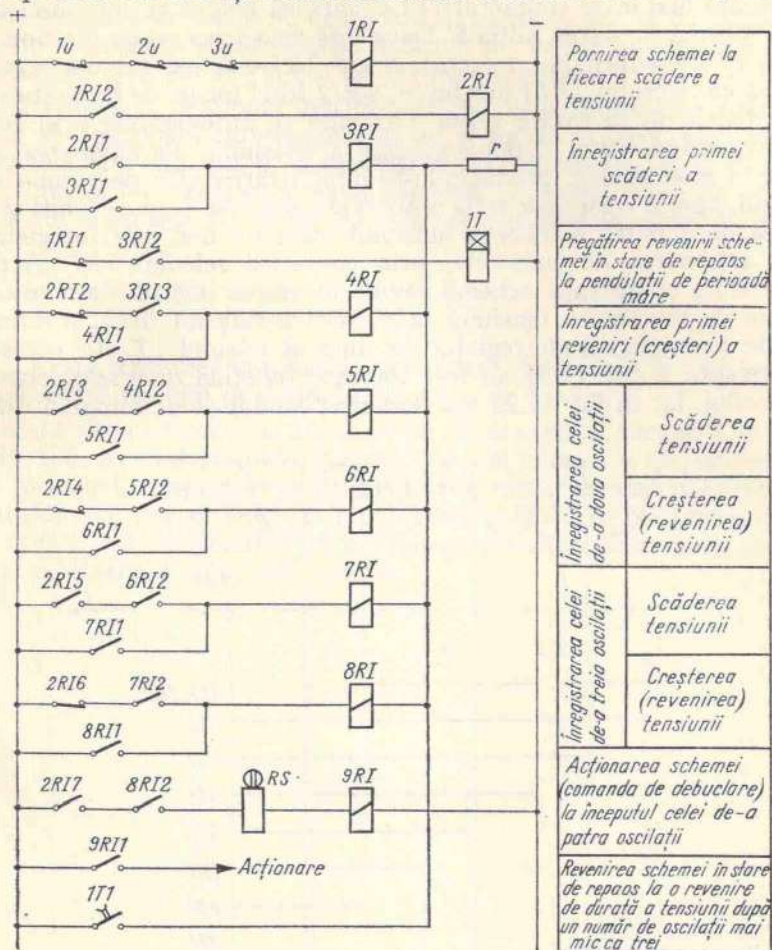 +
−
1u 2u 3u 1RI
1RI2 2RI
2RI1 3RI r
3RI1
1T
1RI1 3RI2
2RI2 3RI3 4RI
4RI1
2RI3 4RI2 5RI
5RI1
2RI4 5RI2 6RI
6RI1
2RI5 6RI2 7RI
7RI1
2RI6 7RI2 8RI
8RI1
2RI7 8RI2 RS 9RI
9RI1
Acționare
1T1
Pornirea schemei la
fiecare scădere a
tensiunii
Înregistrarea primei
scăderi a
tensiunii
Pregătirea revenirii sche-
mei în stare de repaos
la pendulații de perioadă
mare
Înregistrarea primei
reveniri (creșteri) a
tensiunii
Înregistrarea celei
de-a doua oscilații
Scăderea
tensiunii
Creșterea
(revenirea)
tensiunii
Înregistrarea celei
de-a treia oscilații
Scăderea
tensiunii
Creșterea
(revenirea)
tensiunii
Acționarea schemei
(comanda de debuclare)
la începutul celei de-a
patra oscilații
Revenirea schemei în stare
de repaos la o revenire
de durată a tensiunii după
un număr de oscilații mai
mic ca trei